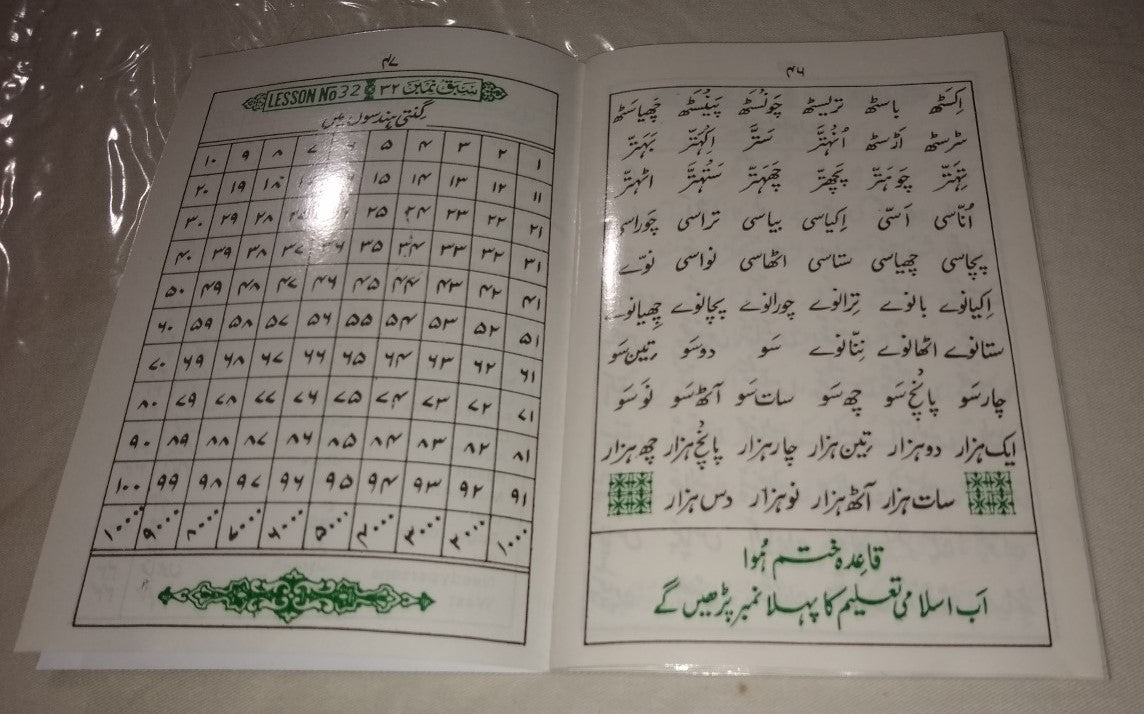 ۴۶
اِکسَٹھ باسٹھ تریسٹھ چَونسَٹھ پَینسَٹھ چھیاسَٹھ
سڑسٹھ اڑسٹھ اُنہتَّر ستَّر اِکہتَّر بَہتَّر
تِہتَّر چوہتَّر پچھتَّر چھہتَّر ستہتَّر اٹھتر
اُنّاسی اَسّی اِکیاسی بیاسی تراسی چَوراسی
پچاسی چھیاسی ستاسی اٹھاسی نواسی نوّے
اِکیانوے بانوے تِرانوے چورانوے پچانوے چھیانوے
ستانوے اٹھانوے نِنّانوے سَو دو سَو تین سَو
چار سَو پانچ سَو چھ سَو سات سَو آٹھ سَو نَو سَو
ایک ہزار دو ہزار تین ہزار چار ہزار پانچ ہزار چھ ہزار
سات ہزار آٹھ ہزار نو ہزار دس ہزار
قاعِدہ ختم ہُوا
اَب اسلامی تعلیم کا پہلا نمبر پڑھیں گے
۴۷
سبق نمبر ۳۲ LESSON No 32
گنتی ہندسوں میں
۱ ۲ ۳ ۴ ۵ ۷ ۸ ۹ ۱۰
۱۱ ۱۲ ۱۳ ۱۴ ۱۵ ۱۸ ۱۹ ۲۰
۲۱ ۲۲ ۲۳ ۲۴ ۲۵ ۲۸ ۲۹ ۳۰
۳۱ ۳۲ ۳۳ ۳۴ ۳۵ ۳۶ ۳۷ ۳۸ ۳۹ ۴۰
۴۱ ۴۲ ۴۳ ۴۴ ۴۵ ۴۶ ۴۷ ۴۸ ۴۹ ۵۰
۵۱ ۵۲ ۵۳ ۵۴ ۵۵ ۵۶ ۵۷ ۵۸ ۵۹ ۶۰
۶۱ ۶۲ ۶۳ ۶۴ ۶۵ ۶۶ ۶۷ ۶۸ ۶۹ ۷۰
۷۱ ۷۲ ۷۳ ۷۴ ۷۵ ۷۶ ۷۷ ۷۸ ۷۹ ۸۰
۸۱ ۸۲ ۸۳ ۸۴ ۸۵ ۸۶ ۸۷ ۸۸ ۸۹ ۹۰
۹۱ ۹۲ ۹۳ ۹۴ ۹۵ ۹۶ ۹۷ ۹۸ ۹۹ ۱۰۰
۱۰۰۰ ۲۰۰۰ ۳۰۰۰ ۴۰۰۰ ۵۰۰۰ ۶۰۰۰ ۷۰۰۰ ۸۰۰۰ ۹۰۰۰ ۱۰۰۰۰